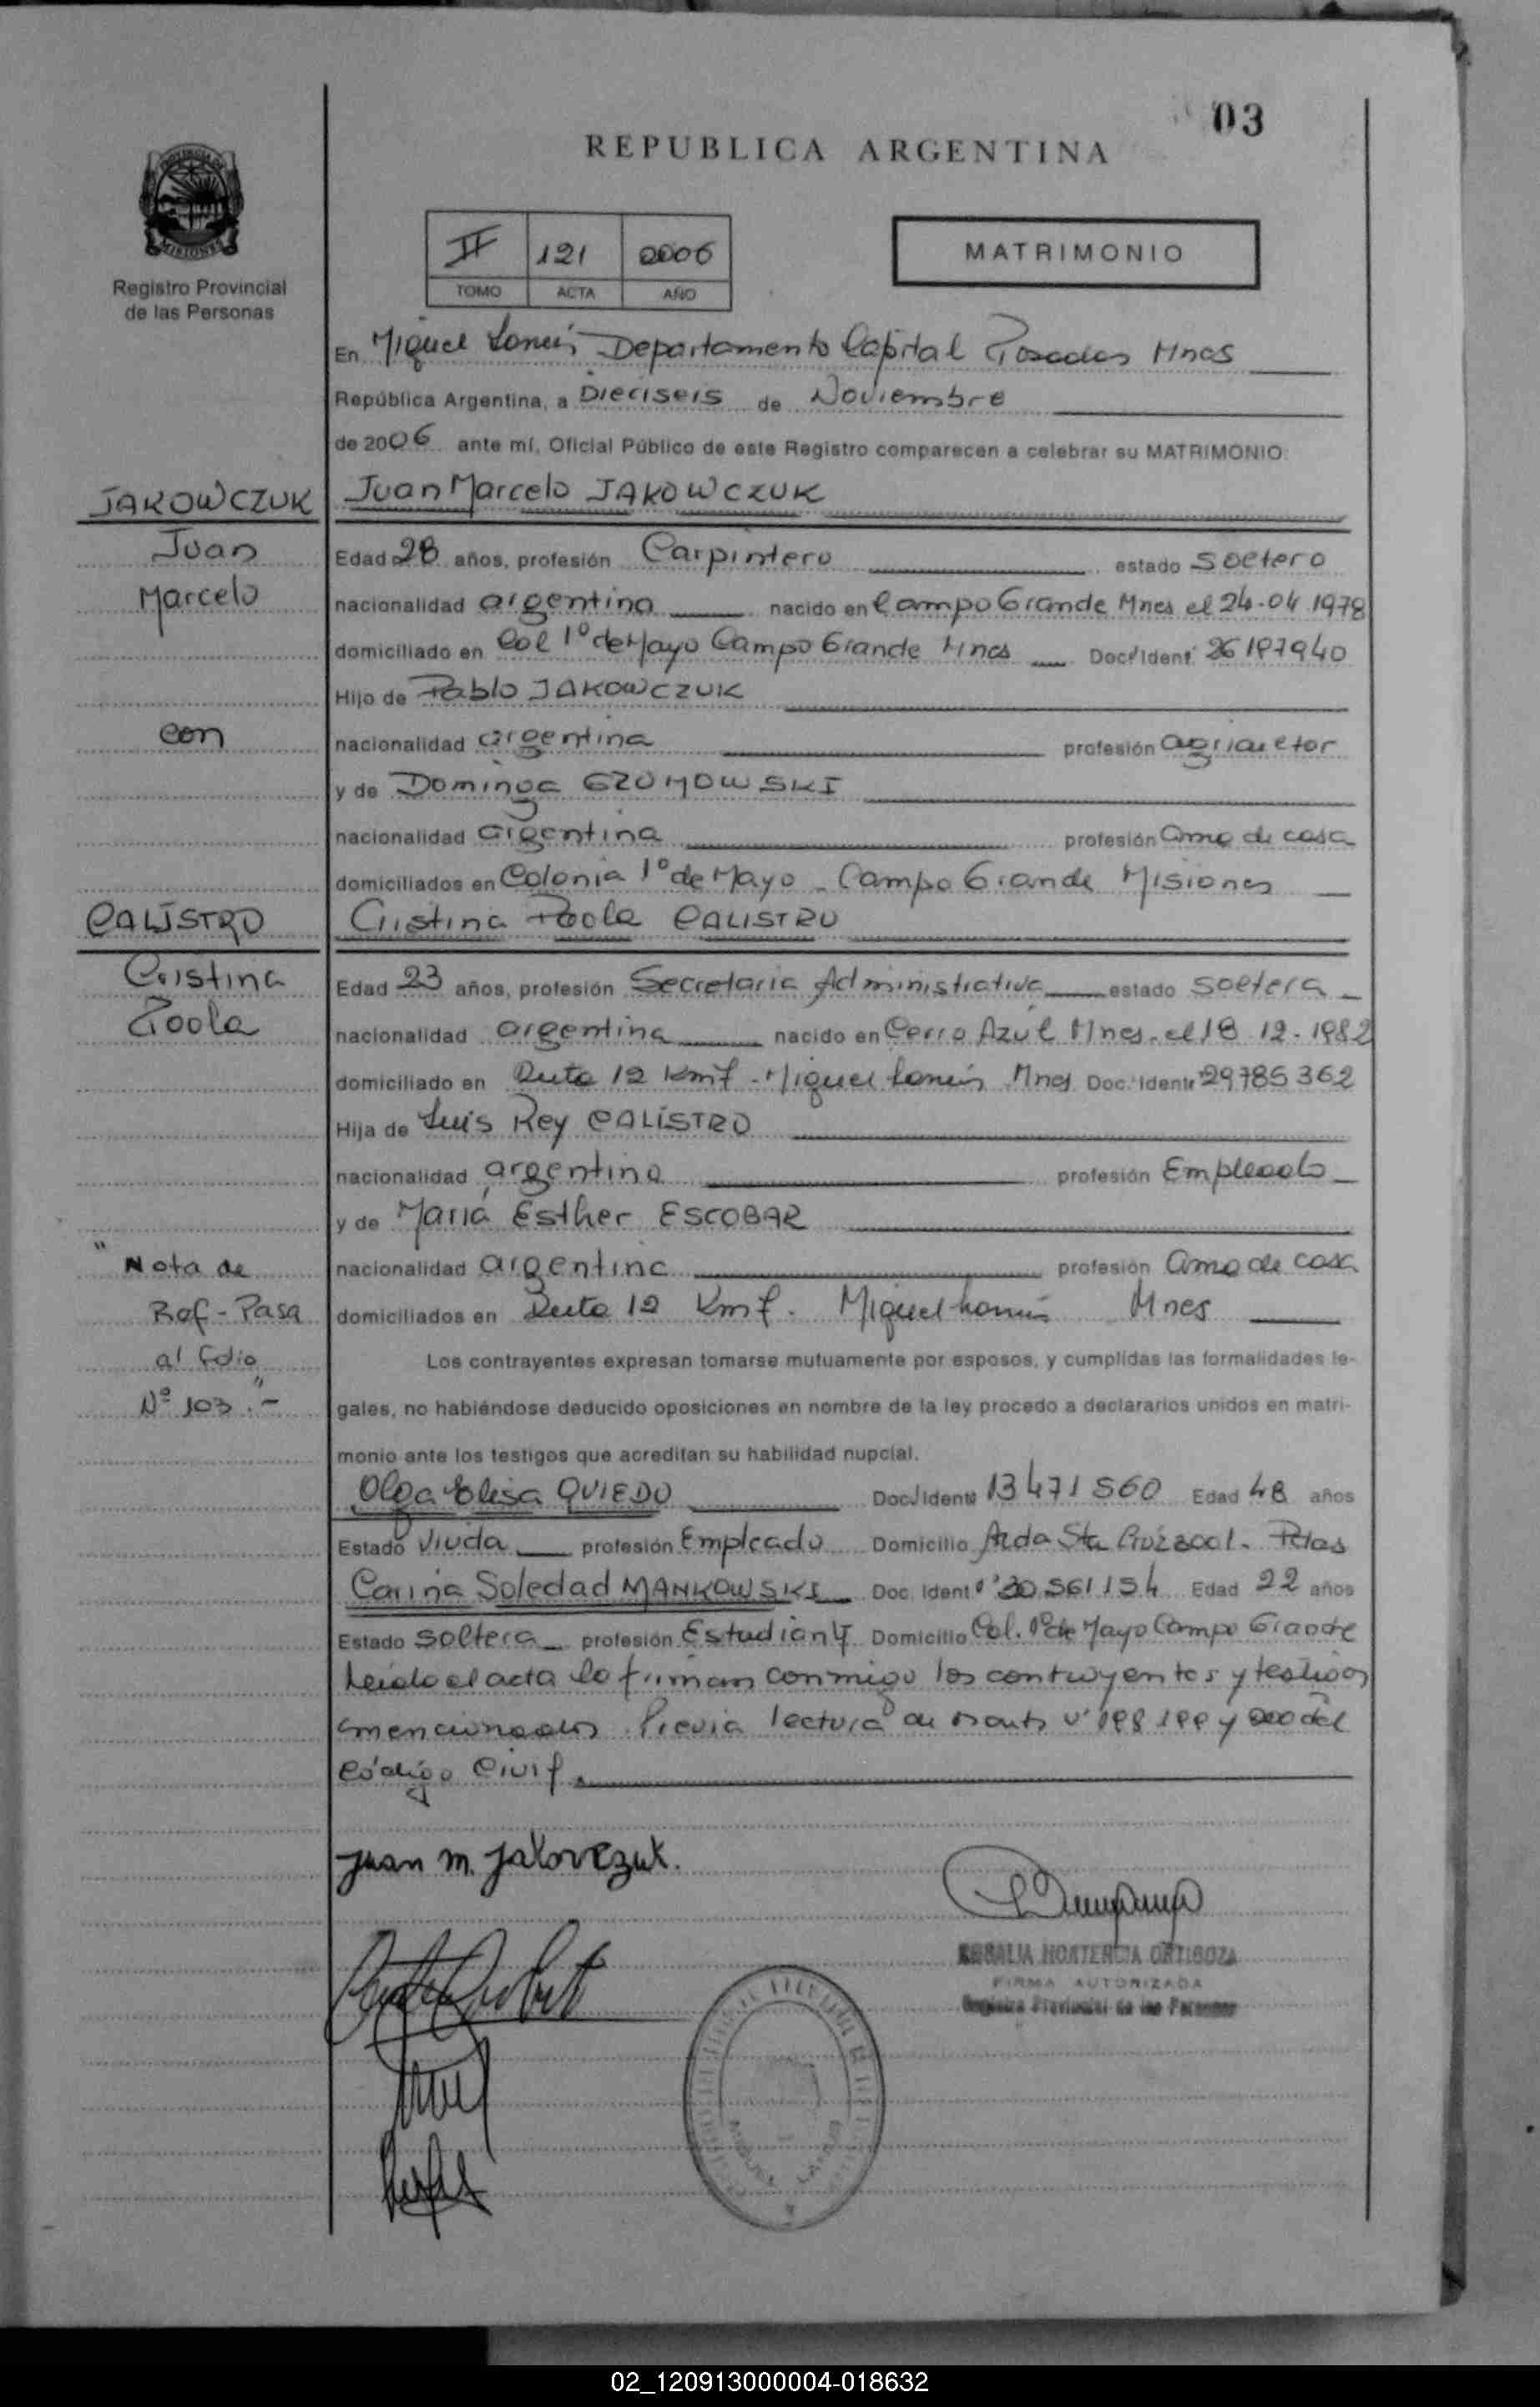 03
REPUBLICA ARGENTINA
PROVINCIA DE
MISIONES
Registro Provincial
de las Personas
II 121 2006
TOMO ACTA AÑO
MATRIMONIO
En Miguel Lanús Departamento Capital Posadas Mnes
República Argentina, a Dieciseis de Noviembre
de 2006 ante mí, Oficial Público de este Registro comparecen a celebrar su MATRIMONIO:
JAKOWCZUK Juan Marcelo JAKOWCZUK
Juan Edad 28 años, profesión Carpintero estado soltero
Marcelo nacionalidad argentina nacido en Campo Grande Mnes el 24-04 1978
domiciliado en Col 1º de Mayo Campo Grande Mnes Doc. Ident. 26197940
Hijo de Pablo JAKOWCZUK
con nacionalidad argentina profesión agricultor
y de Dominga GZUMOWSKI
nacionalidad argentina profesión ama de casa
domiciliados en Colonia 1º de Mayo - Campo Grande Misiones
CALISTRO Cristina Paola CALISTRO
Cristina Edad 23 años, profesión Secretaria Administrativa estado soltera
Paola nacionalidad argentina nacido en Cerro Azul Mnes. el 18 12-1982
domiciliado en Ruta 12 Km 7 - Miguel Lanús Mnes Doc. Ident. 29785362
Hija de Luis Rey CALISTRO
nacionalidad argentina profesión Empleado
y de María Esther ESCOBAR
"Nota de nacionalidad argentina profesión ama de casa
Ref - Pasa domiciliados en Ruta 12 Km 7. Miguel Lanús Mnes
al folio Los contrayentes expresan tomarse mutuamente por esposos, y cumplidas las formalidades le-
Nº 103".- gales, no habiéndose deducido oposiciones en nombre de la ley procedo a declararlos unidos en matri-
monio ante los testigos que acreditan su habilidad nupcial.
Olga Elisa OVIEDO Doc. Ident. 13471560 Edad 48 años
Estado Viuda profesión Empleado Domicilio Avda Sta Cruz - Pdas
Carina Soledad MANKOWSKI Doc. Ident. 30561154 Edad 22 años
Estado soltera profesión Estudiante Domicilio Col. 1º de Mayo Campo Grande
Leído el acta lo firman conmigo los contrayentes y testigos
mencionados. Previa lectura de 198 199 y 200 del
Código Civil.
Juan M. Jakowczuk.
ROSALIA HORTENCIA ORTIGOZA
FIRMA AUTORIZADA
Registro Provincial de las Personas
02_120913000004-018632